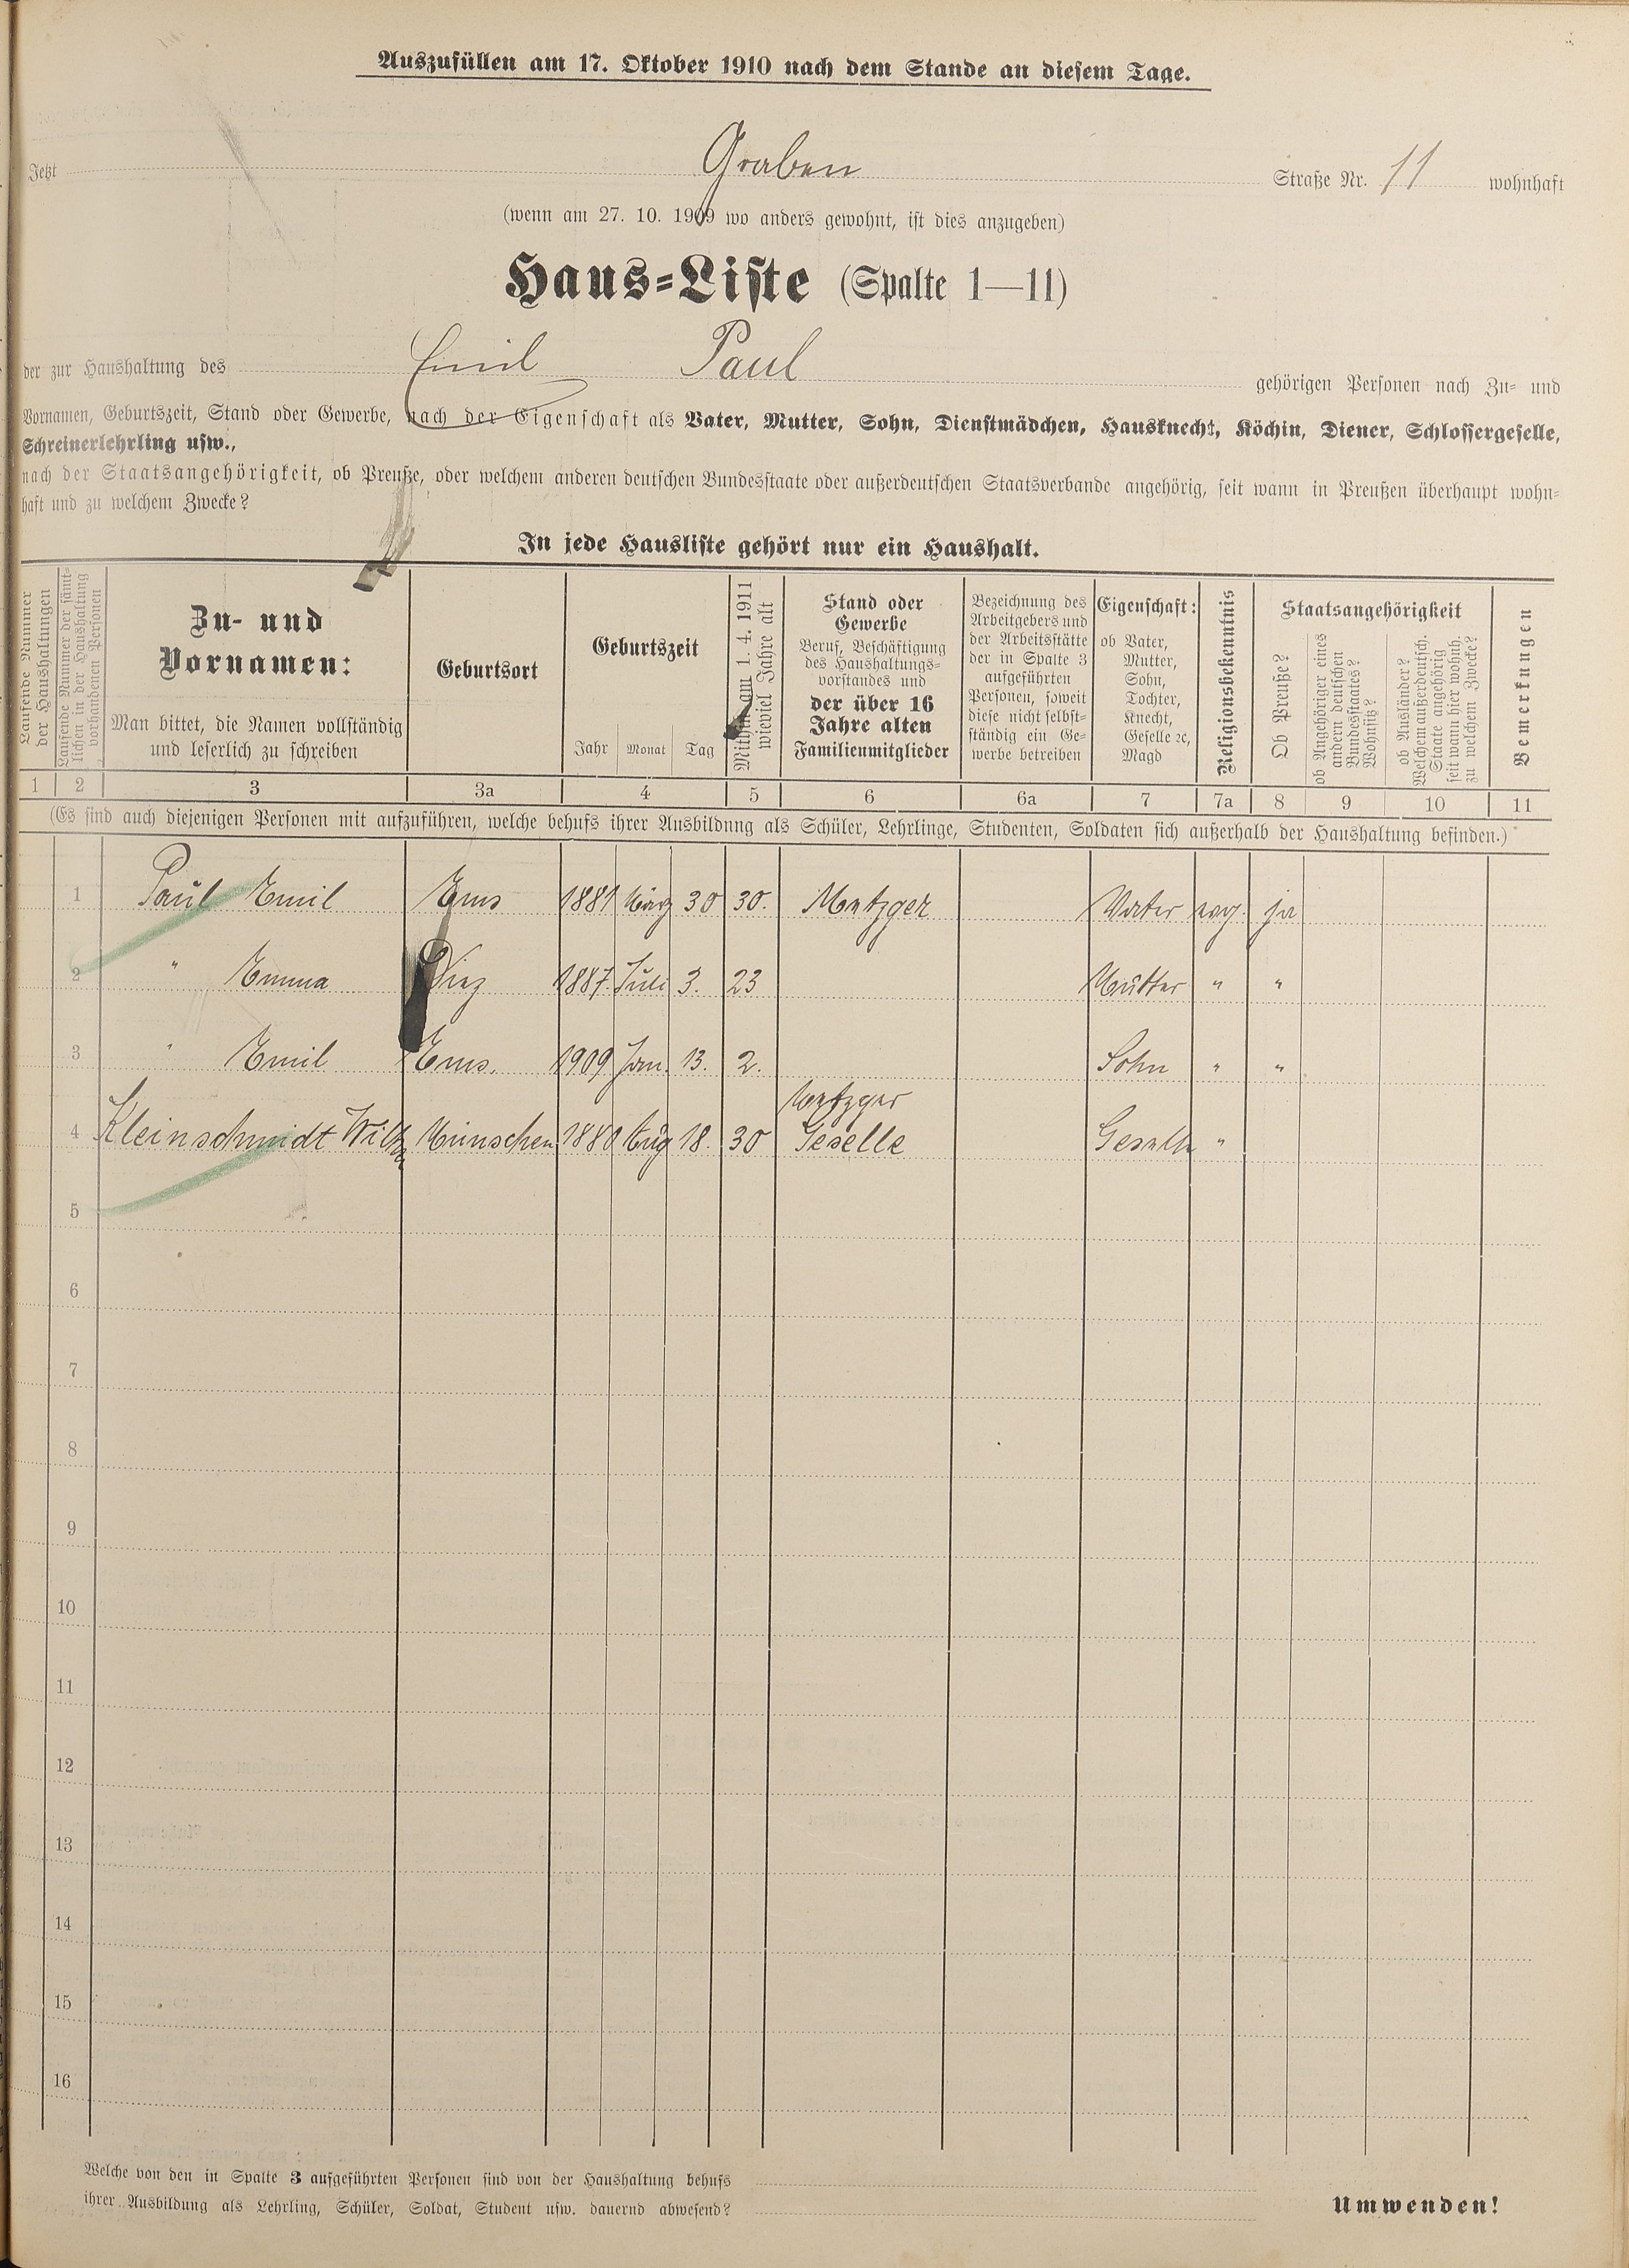 Auszufüllen am 17. Oktober 1910 nach dem Stande an diesem Tage.
Jetzt Graben Straße Nr. 11 wohnhaft
(wenn am 27. 10. 1909 wo anders gewohnt, ist dies anzugeben)
Haus-Liste (Spalte 1—11)
der zur Haushaltung des Emil Paul gehörigen Personen nach Zu- und
Vornamen, Geburtszeit, Stand oder Gewerbe, nach der Eigenschaft als Vater, Mutter, Sohn, Dienstmädchen, Hausknecht, Köchin, Diener, Schlossergeselle,
Schreinerlehrling usw.,
nach der Staatsangehörigkeit, ob Preuße, oder welchem anderen deutschen Bundesstaate oder außerdeutschen Staatsverbande angehörig, seit wann in Preußen überhaupt wohn-
haft und zu welchem Zwecke?
In jede Hausliste gehört nur ein Haushalt.
Laufende Nummer
der Haushaltungen
Laufende Nummer der sämt-
lichen in der Haushaltung
vorhandenen Personen
Zu- und
Vornamen:
Man bittet, die Namen vollständig
und leserlich zu schreiben
Geburtsort
Geburtszeit
Jahr Monat Tag
Mithin am 1. 4. 1911
wieviel Jahre alt
Stand oder
Gewerbe
Beruf, Beschäftigung
des Haushaltungs-
vorstandes und
der über 16
Jahre alten
Familienmitglieder
Bezeichnung des
Arbeitgebers und
der Arbeitsstätte
der in Spalte 3
aufgeführten
Personen, soweit
diese nicht selbst-
ständig ein Ge-
werbe betreiben
Eigenschaft:
ob Vater,
Mutter,
Sohn,
Tochter,
Knecht,
Geselle ꝛc,
Magd
Religionsbekenntnis
Staatsangehörigkeit
Ob Preuße?
ob Angehöriger eines
andern deutschen
Bundesstaates?
Wohnsitz?
ob Ausländer?
Welchem außerdeutsch.
Staate angehörig
seit wann hier wohnh.
zu welchem Zwecke?
Bemerkungen
1 2 3 3a 4 5 6 6a 7 7a 8 9 10 11
(Es sind auch diejenigen Personen mit aufzuführen, welche behufs ihrer Ausbildung als Schüler, Lehrlinge, Studenten, Soldaten sich außerhalb der Haushaltung befinden.)
1 Paul Emil Ems 1881 März 30 30. Metzger Vater evg. ja
2 " Emma Diez 1887. Juli 3. 23 Mutter " "
3 " Emil Ems. 1909 Jan. 13. 2. Sohn " "
Metzger
4 Kleinschmidt Wilh 1880 Aug 18. 30 Geselle Geselle "
5
6
7
8
9
10
11
12
13
14
15
16
Welche von den in Spalte 3 aufgeführten Personen sind von der Haushaltung behufs
ihrer Ausbildung als Lehrling, Schüler, Soldat, Student usw. dauernd abwesend?
Umwenden!